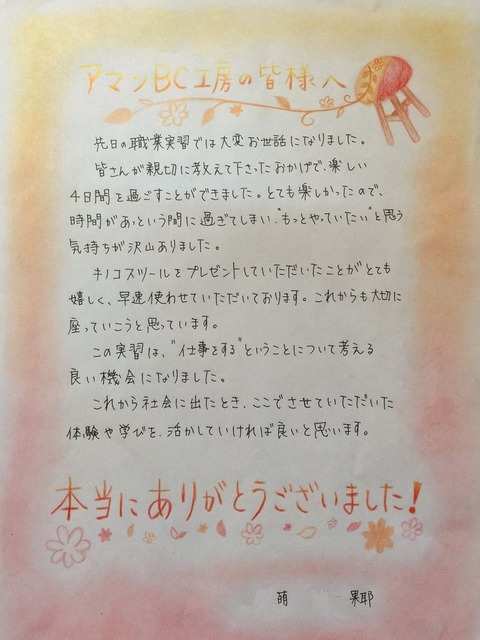 アマンBC工房の皆様へ
先日の職業実習では大変お世話になりました。
皆さんが親切に教えて下さったおかげで、楽しい
4日間を過ごすことができました。とても楽しかったので、
時間があっという間に過ぎてしまい、"もっとやっていたい"と思う
気持ちが沢山ありました。
キノコスツールをプレゼントしていただいたことがとても
嬉しく、早速使わせていただいております。これからも大切に
座っていこうと思っています。
この実習は、"仕事をする"ということについて考える
良い機会になりました。
これから社会に出たとき、ここでさせていただいた
体験や学びを、活かしていければ良いと思います。
本当にありがとうございました!
萌 果耶